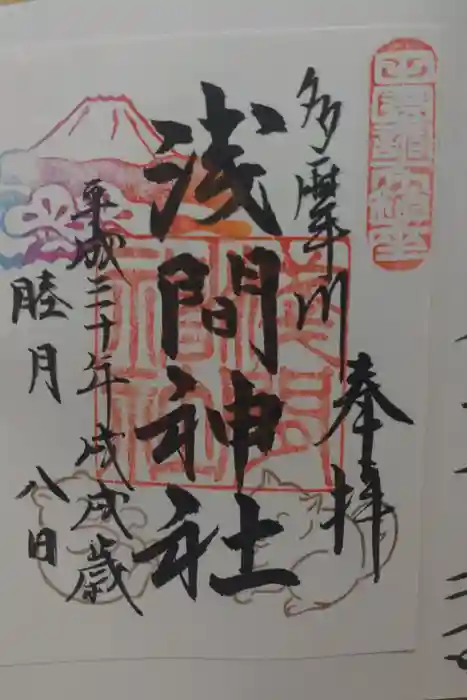 奉拝
多摩川
浅間神社
平成三十年戊戌歳
睦月 八日